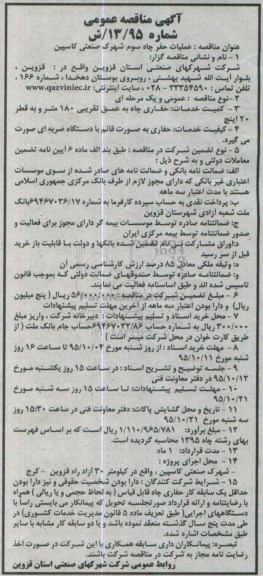 آگهی مناقصه عمومی
شماره ۱۳/۹۵/ش
عنوان مناقصه : عملیات حفر چاه سوم شهرک صنعتی کاسپین
۱ - نام و نشانی مناقصه گزار:
شرکت شهرکهای صنعتی استان قزوین واقع در : قزوین ،
بلوار آیت الله شهید بهشتی ، روبروی بوستان دهخدا ، شماره ۱۶۶ ،
تلفن تماس : ۳۳۳۵۴۵۹۰ - ۰۲۸ سایت اینترنتی: www.qazviniec.ir
۲ - نوع مناقصه : عمومی و یک مرحله ای
۳ - کمیت خدمات: حفاری چاه به عمق تقریبی ۱۸۰ متر و به قطر
۲۰ اینچ
۴ - کیفیت خدمات: حفاری به صورت قائم با دستگاه ضربه ای صورت
می گیرد.
۵ - نوع تضمین شرکت در مناقصه : طبق بند الف ماده ۶ آیین نامه تضمین
معاملات دولتی و به شرح ذیل :
الف: ضمانت نامه بانکی و ضمانت نامه های صادر شده از سوی موسسات
اعتباری غیر بانکی که دارای مجوز لازم از طرف بانک مرکزی جمهوری اسلامی
هستند با مدت اعتبار سه ماهه
ب: پرداخت نقدی به حساب سپرده کارفرما به شماره ۶۹۴۶۷۰۳۶/۱۷ بانک
ملت شعبه آزادی شهرستان قزوین
ج: ضمانتنامه صادره توسط موسسات بیمه گر دارای مجوز برای فعالیت و
صدور ضمانتنامه توسط بیمه مرکزی ایران
د: اوراق مشارکت بی نام تضمین شده بانکها و دولت با قابلیت باز خرید
قبل از سر رسید
ه: وثیقه ملکی معادل ۸۵ درصد ارزش کارشناسی رسمی آن
و: ضمانتنامه صادره توسط صندوقهای ضمانت دولتی که بموجب قانون
تاسیس شده اند و طبق اساسنامه فعالیت می نمایند.
۶ - مبلغ تضمین شرکت در مناقصه: ۵۶/۰۰۰/۰۰۰ ریال ( پنج میلیون
ریال) و دارا بودن اعتبار سه ماهه از آخرین مهلت تسلیم پیشنهادات
۷ - محل خرید اسناد و تسلیم پیشنهادات : دبیرخانه شرکت ، واریز مبلغ
۳۰۰/۰۰۰ ریال به شماره حساب ۶۹۴۶۷۰۳۲/۸۶ حساب جام بانک ملت ( از
طریق کارت خوان در محل شرکت میسر است )
۸ - مهلت خرید اسناد : از روز شنبه مورخ ۹۵/۱۰/۰۴ تا ساعت ۱۶ روز
شنبه مورخ ۹۵/۱۰/۱۱
۹ - جلسه توضیح و تشریح اسناد : در ساعت ۱۵ روز یکشنبه مورخ
۹۵/۱۰/۱۲ در دفتر معاونت فنی
۱۰ - مهلت تسلیم پیشنهادات: تا ساعت ۱۵ روز سه شنبه مورخ
۹۵/۱۰/۲۱
۱۱ - تاریخ و محل گشایش پاکات: دفتر معاونت فنی در ساعت ۱۵:۳۰ روز
سه شنبه مورخ ۹۵/۱۰/۲۱
۱۲ - مبلغ برآورد: ۱/۱۱۰/۹۶۵/۷۸۱ ریال است که بر اساس فهرست
بهای رشته چاه ۱۳۹۵ محاسبه گردیده است.
۱۳ - مدت قرارداد: ۱ ماه
۱۴ - محل اجرای پروژه :
- شهرک صنعتی کاسپین ، واقع در کیلومتر ۳۰ آزاد راه قزوین - کرج
۱۵ - شرایط شرکت کنندگان : دارا بودن شخصیت حقوقی و نیز دارا بودن
حداقل یک سابقه کار حفاری چاه قابل قیاس ( به لحاظ حجمی و یا ریالی ) همراه
با رضایتنامه و ارائه قرارداد صورتجلسه تحویل که پیمانکار می بایستی راسا با
دستگاههای اجرایی( طبق تعریف ماده ۵ قانون مدیریت خدمات کشوری) در
طی مدت پنج سال گذشته منعقد نموده باشد و یا دو سابقه کار مشابه با سایر
طبق مشخصات اشاره شده.
تبصره: پیمانکاران دارای سابقه همکاری با این شرکت در صورت اخذ
رضایت نامه مجاز به شرکت در مناقصه شرکت باشند.
روابط عمومی شرکت شهرکهای صنعتی استان قزوین